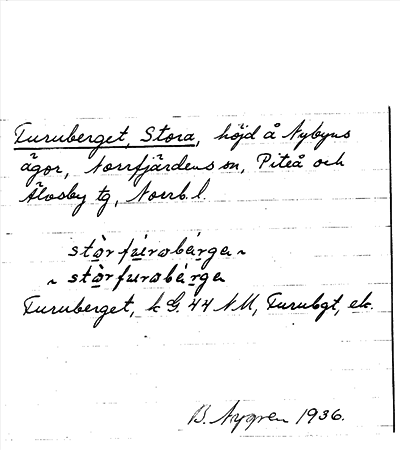 Furuberget, Stora, höjd å Nybyns
ägor, Norrfjärdens sn, Piteå och
Älvsby tg, Norrb. l.
stòrfúrobærga ~
~ stòrfurobærga
Furuberget, k G. 44 NM, Furubgt, ek.
B. Nygren 1936.